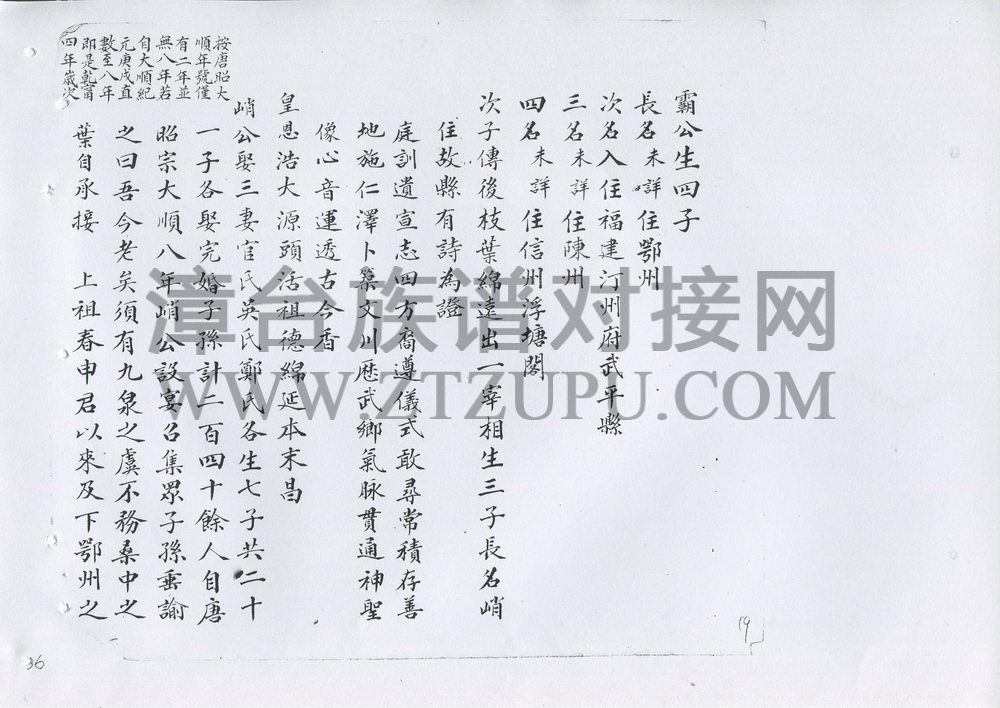 霸公生四子
長名未詳住鄂州
次名入住福建汀州府武平縣
三名未詳住陳州
四名未詳住信州浮塘閣
次子傳後枝葉綿遠出一宰相生三子長名峭
住故縣有詩為證
庭訓遺宣志四方裔遵儀式敢尋常積存善
地施仁澤卜築文川歷武鄉氣脉貫通神聖
像心音運透古今香
皇恩浩大源頭活祖德綿延本末昌
峭公娶三妻官氏吳氏鄭氏各生七子共二十
一子各娶完婚子孫計二百四十餘人自唐
昭宗大順八年峭公設宴召集眾子孫垂諭
之曰吾今老矣須有九泉之虞不務桑中之
葉自承接 上祖春申君以來及下鄂州之
按唐昭大
順年號僅
有二年並
無八年若
自大順紀
元庚戌直
數至八年
即是乾甯
四年歲次
漳台族谱对接网
WWW.ZTZUPU.COM
19
36